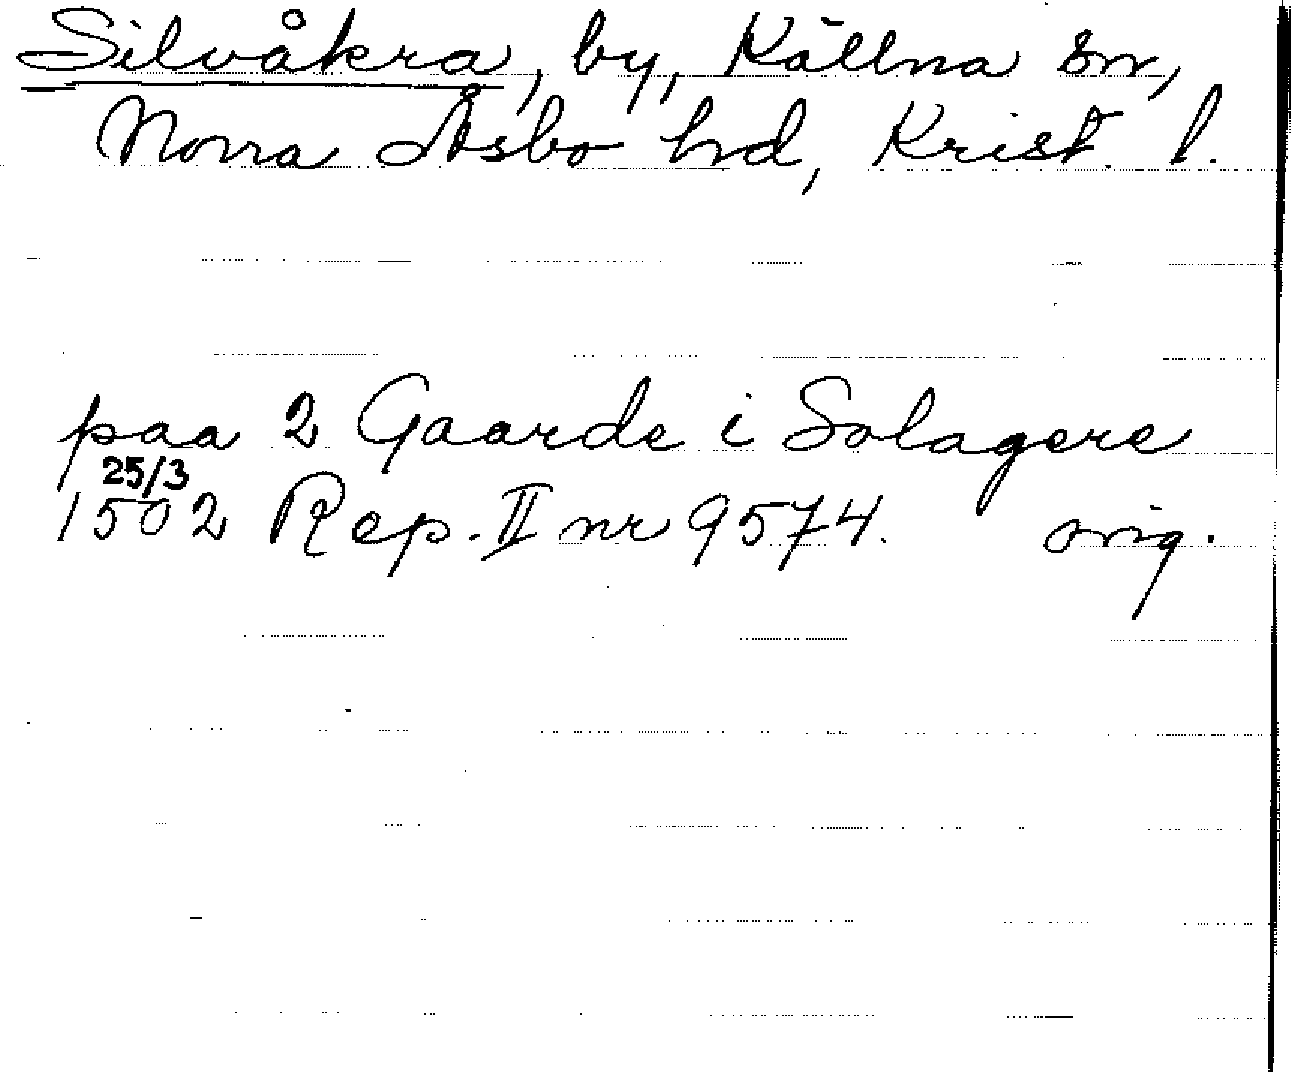 Silvåkra, by, Källna sn,
Norra Åsbo hd, Krist. l.
paa 2 Gaarde i Solagere
25/3
1502 Rep. II nr 9574. orig.